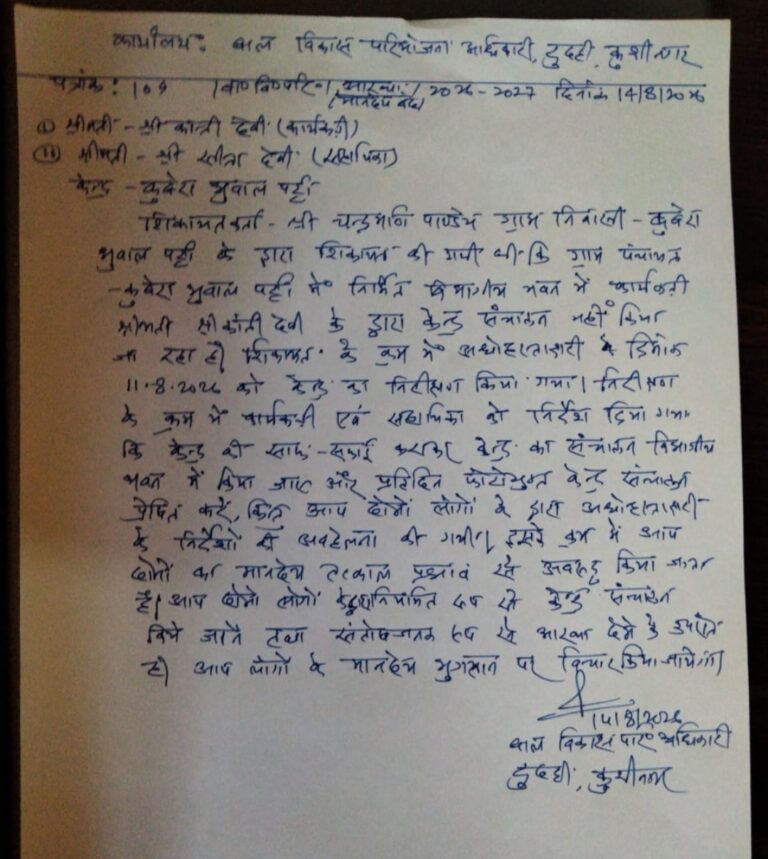 कार्यालय: बाल विकास परियोजना अधिकारी, दुदही, कुशीनगर
पत्रांक: 109 /बा०वि०परि०/आख्या/ 2026-2027 दिनांक 14/8/2026
/मानदेय बन्द
(i) श्रीमती - श्री कान्ती देवी (कार्यकत्री)
(ii) श्रीमती - श्री देवी (सहायिका)
केन्द्र - कुबेरा भुवाल पट्टी
शिकायतकर्ता - श्री चन्द्रभान पाण्डेय ग्राम निवासी - कुबेरा
भुवाल पट्टी के द्वारा शिकायत की गयी थी कि ग्राम पंचायत
- कुबेरा भुवाल पट्टी में निर्मित विभागीय भवन में कार्यकत्री
श्रीमती श्रीकांती देवी के द्वारा केन्द्र संचालन नहीं किया
जा रहा है। शिकायत के क्रम में अधोहस्ताक्षरी के दिनांक
11.8.2026 को केन्द्र का निरीक्षण किया गया। निरीक्षण
के क्रम में कार्यकत्री एवं सहायिका को निर्देश दिया गया
कि केन्द्र की साफ-सफाई कराकर केन्द्र का संचालन विभागीय
भवन में किया जाए और प्रतिदिन फोटोयुक्त केन्द्र संचालन
प्रेषित करें, किन्तु आप दोनों लोगों के द्वारा अधोहस्ताक्षरी
के निर्देशों की अवहेलना की गयी। इसके क्रम में आप
दोनों का मानदेय तत्काल प्रभाव से अवरुद्ध किया जाता
है। आप दोनों लोगों के द्वारा नियमित रूप से केन्द्र संचालन
किये जाने तथा संतोषजनक रूप से आख्या देने के उपरांत
ही आप लोगों के मानदेय भुगतान पर विचार किया जायेगा।
14/8/2026
बाल विकास परि० अधिकारी
दुदही, कुशीनगर